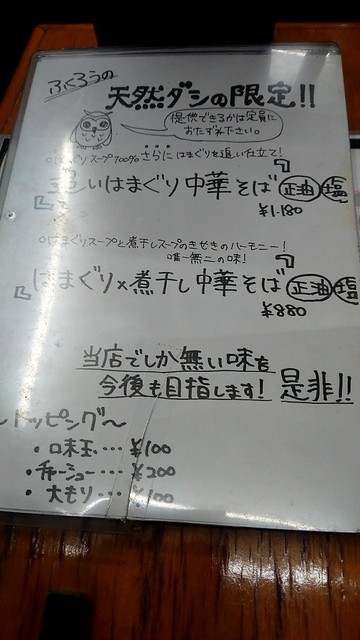 ふくろうの
天然ダシの限定!!
提供できるかは定員に
おたずね下さい。
○はまぐりスープ100%さらにはまぐりを追い仕立て!
『追いはまぐり中華そば』正油 塩
¥1.180
○はまぐりスープと煮干しスープのきせきのハーモニー!
唯一無二の味!
『はまぐり×煮干し中華そば』正油 塩
¥880
当店でしか無い味を
今後も目指します! 是非!!
~トッピング~
・味玉‥‥¥100
・チャーシュー‥‥¥200
・大もり‥‥¥100